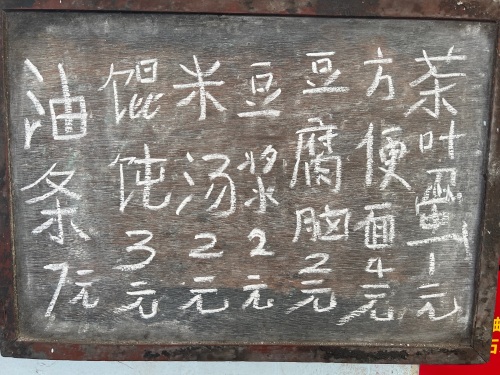 油条1元
馄饨3元
米汤2元
豆浆2元
豆腐脑2元
方便面4元
茶叶蛋1元